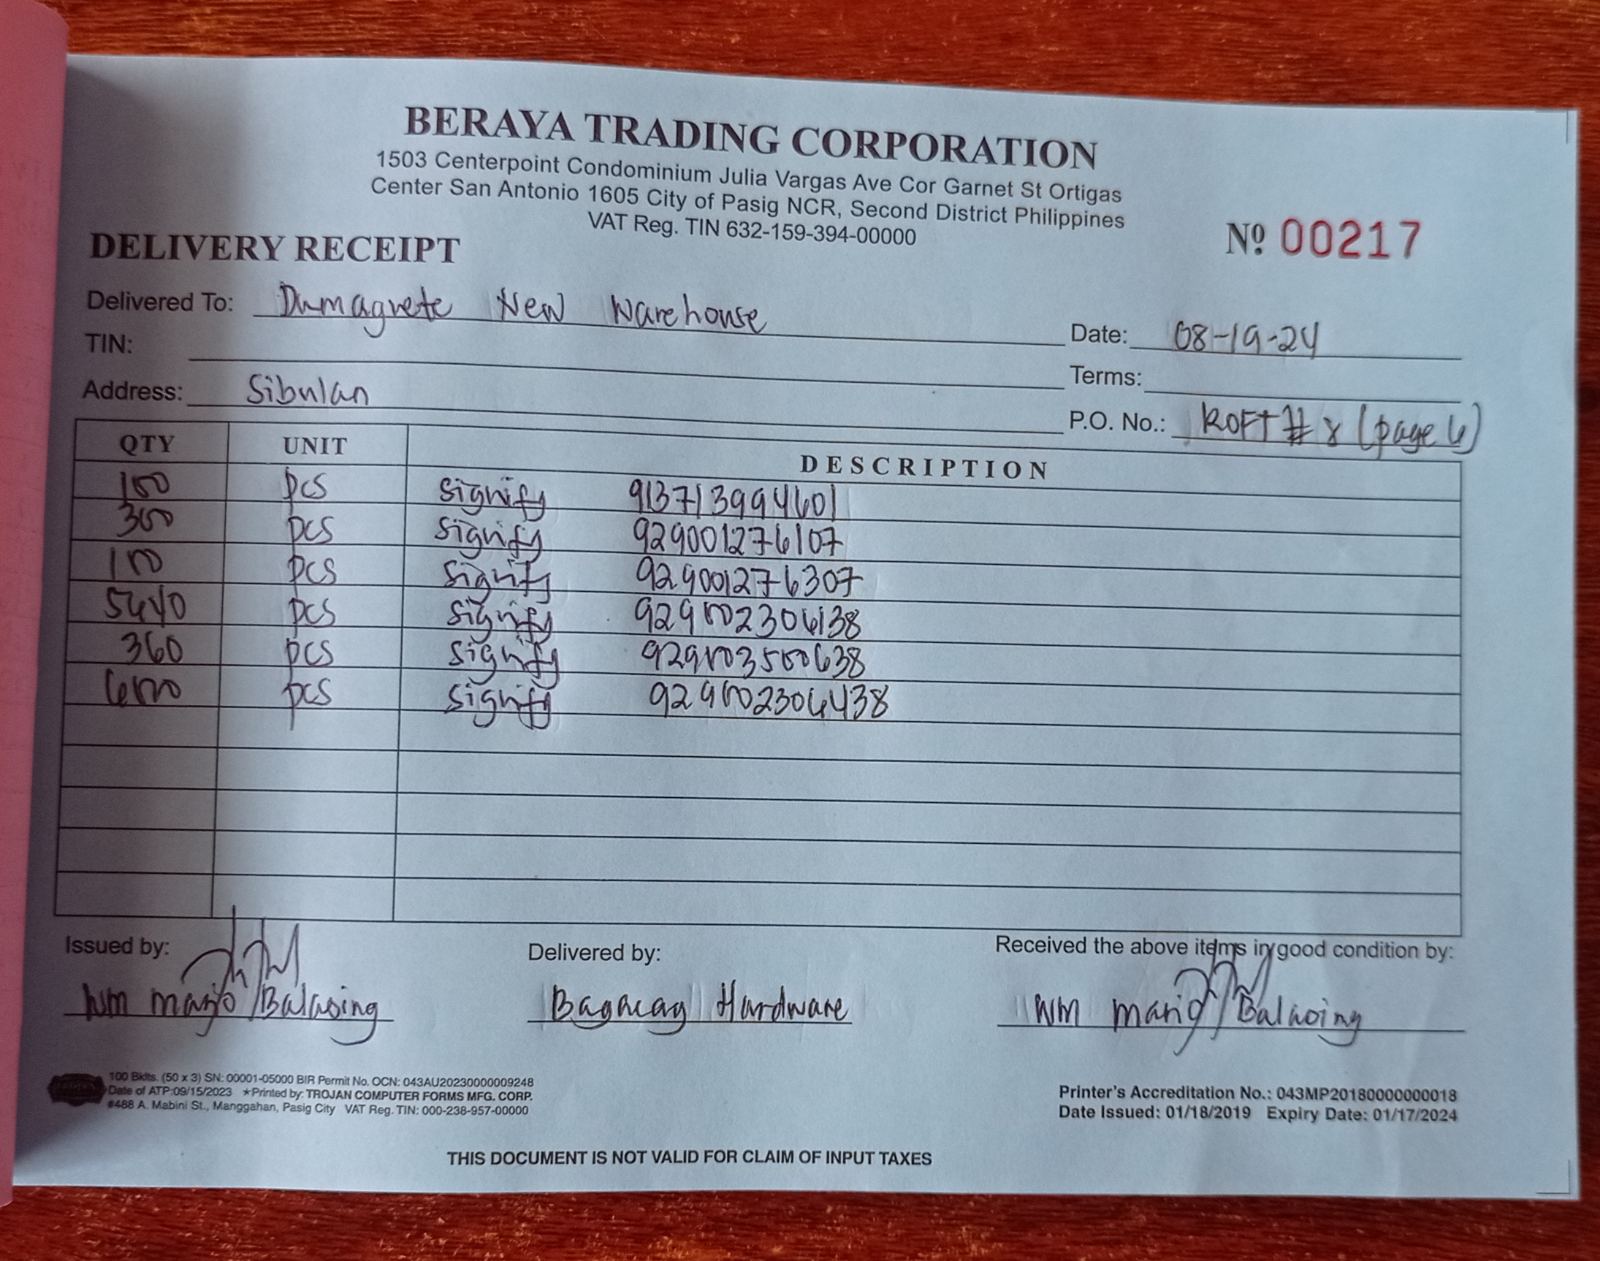 BERAYA TRADING CORPORATION
1503 Centerpoint Condominium Julia Vargas Ave Cor Garnet St Ortigas
Center San Antonio 1605 City of Pasig NCR, Second District Philippines
VAT Reg. TIN 632-159-394-00000
DELIVERY RECEIPT
Nº 00217
Delivered To: Dumaguete New Warehouse
Date: 08-19-24
TIN:
Terms:
Address: Sibulan
P.O. No.: ROFT # 8 (page 6)
QTY UNIT DESCRIPTION
100 pcs signify 913713994601
300 pcs signify 929001276107
100 pcs signify 929001276307
5440 pcs signify 929002306138
360 pcs signify 929003500638
6000 pcs signify 929002306438
Issued by: Delivered by: Received the above items in good condition by:
WM Balaoing Bagacay Hardware WM Balaoing
100 Bklts. (50 x 3) SN: 00001-05000 BIR Permit No. OCN: 043AU20230000009248
Date of ATP:09/15/2023 ★Printed by: TROJAN COMPUTER FORMS MFG. CORP.
#488 A. Mabini St., Manggahan, Pasig City VAT Reg. TIN: 000-238-957-00000
Printer's Accreditation No.: 043MP20180000000018
Date Issued: 01/18/2019 Expiry Date: 01/17/2024
THIS DOCUMENT IS NOT VALID FOR CLAIM OF INPUT TAXES